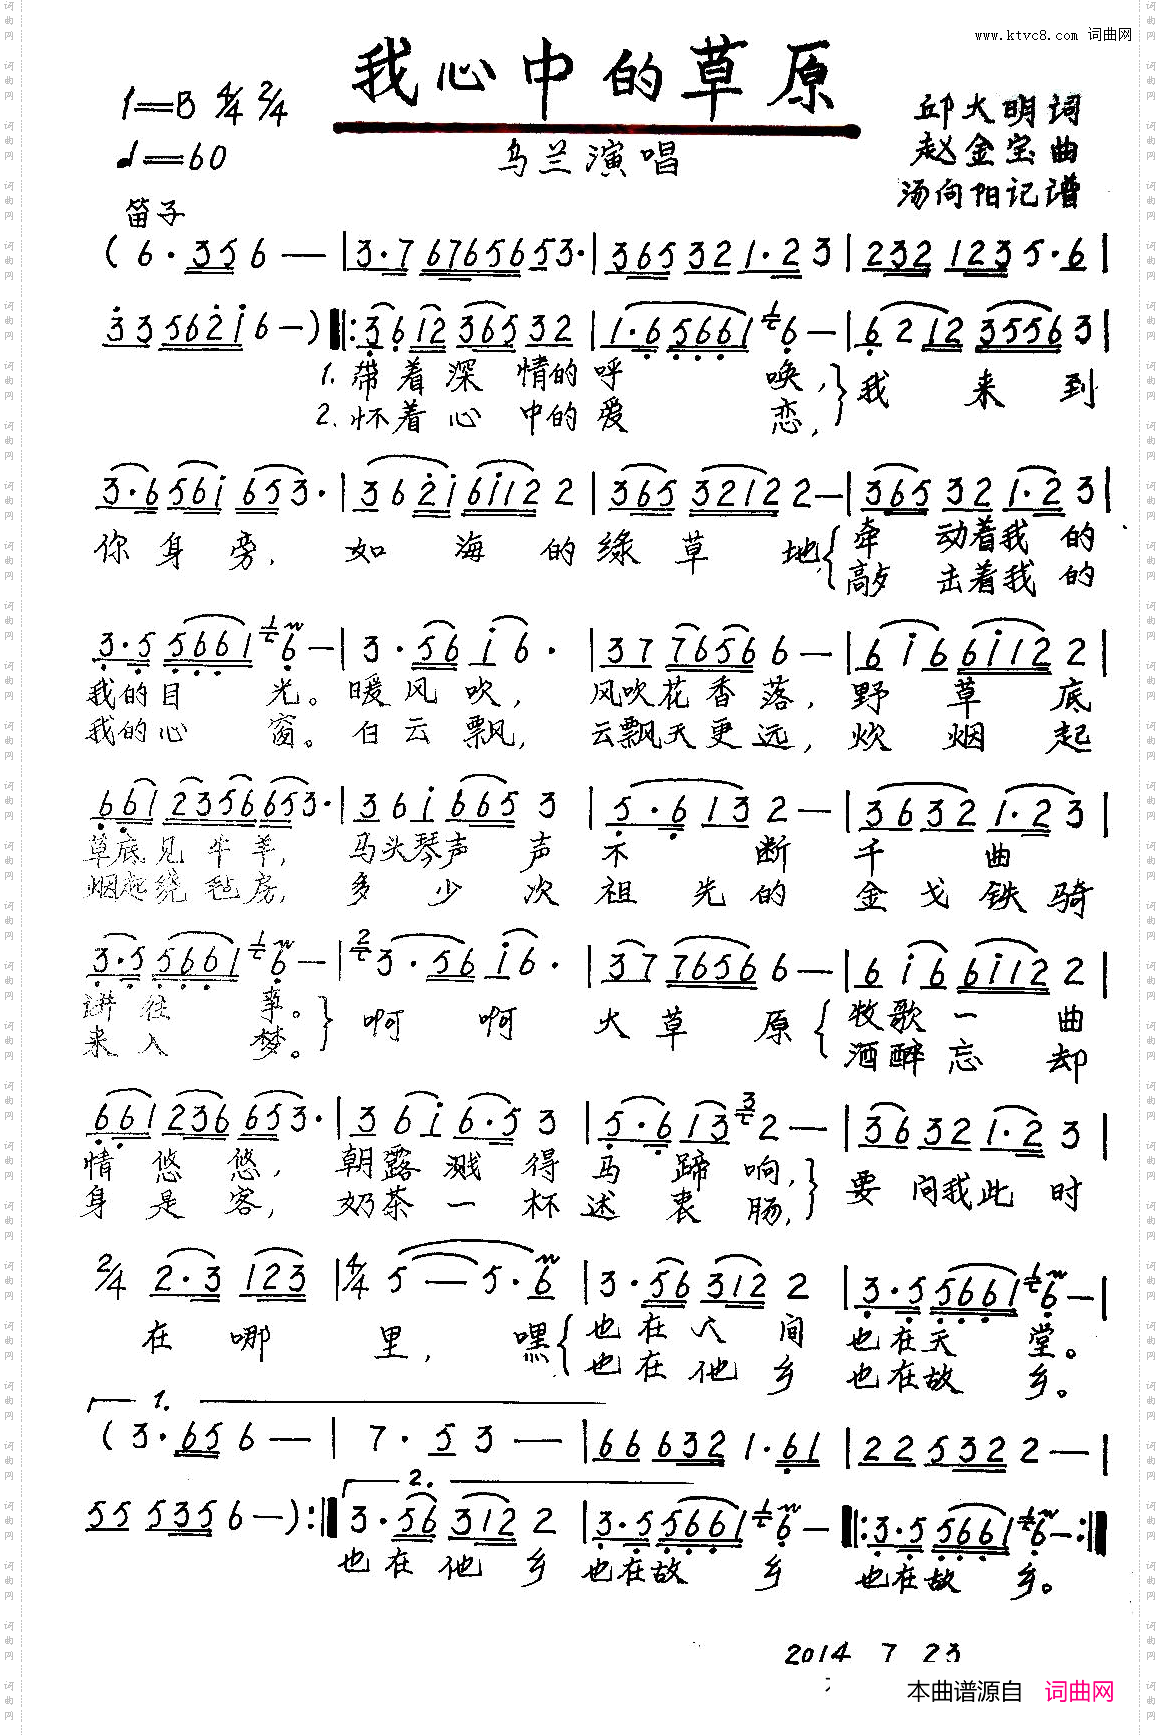 www.ktvc8.com 词曲网
我心中的草原
1=B 4/4 2/4
♩=60
乌兰演唱
邱大明词
赵金宝曲
汤向阳记谱
笛子
(6·356— |3·7676565653·|365321·23|2321235·6|
3356216—)‖:361236532|1·656616—|621235563|
1.带着深情的呼唤,}我来到
2.怀着心中的爱恋,
3·6561653·|362161122|36532122—|365321·23|
你身旁,如海的绿草地,{牵动着我的
敲击着我的
3·556616—|3·5616·|37765666—|6166111 22|
我的目光。暖风吹,风吹花香落,野草底
我的心窗。白云飘,云飘天更远,炊烟起
6612356653·|3616653|5·6132—|36321·23|
草底见牛羊,马头琴声声不断千曲
烟起绕毡房,多少次祖先的金戈铁骑
3·556616—|3·5616·|37765666—|616611122|
讲往事。}啊啊大草原{牧歌一曲
来入梦。 酒醉忘却
661236653·|3616·53|5·6132—|36321·23|
情悠悠,朝露溅得马蹄响,}要问我此时
身是客,奶茶一杯述衷肠,
2/4 2·3123|4/4 5—5·6|3·563122|3·556616—|
在哪里,嘿{也在人间也在天堂。
也在他乡也在故乡。
1.
(3·656—|7·53—|666321·61|225322—|
2.
5553556—):‖3·563122|3·556616—‖:3·556616—:‖
也在他乡也在故乡也在故乡。
2014 7 23
本曲谱源自 词曲网